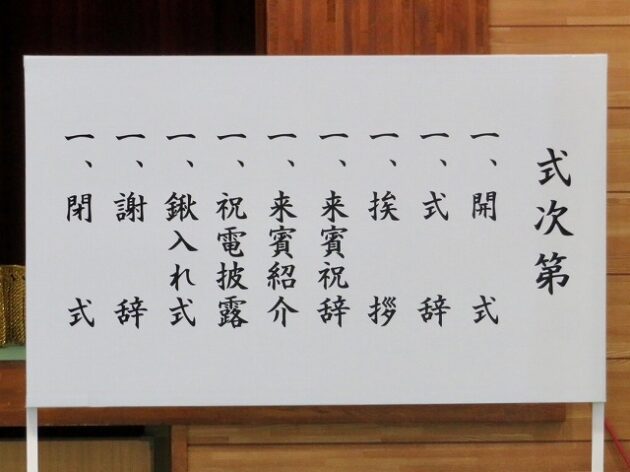 式次第
一、開式
一、式辞
一、挨拶
一、来賓祝辞
一、来賓紹介
一、祝電披露
一、鍬入れ式
一、謝辞
一、閉式